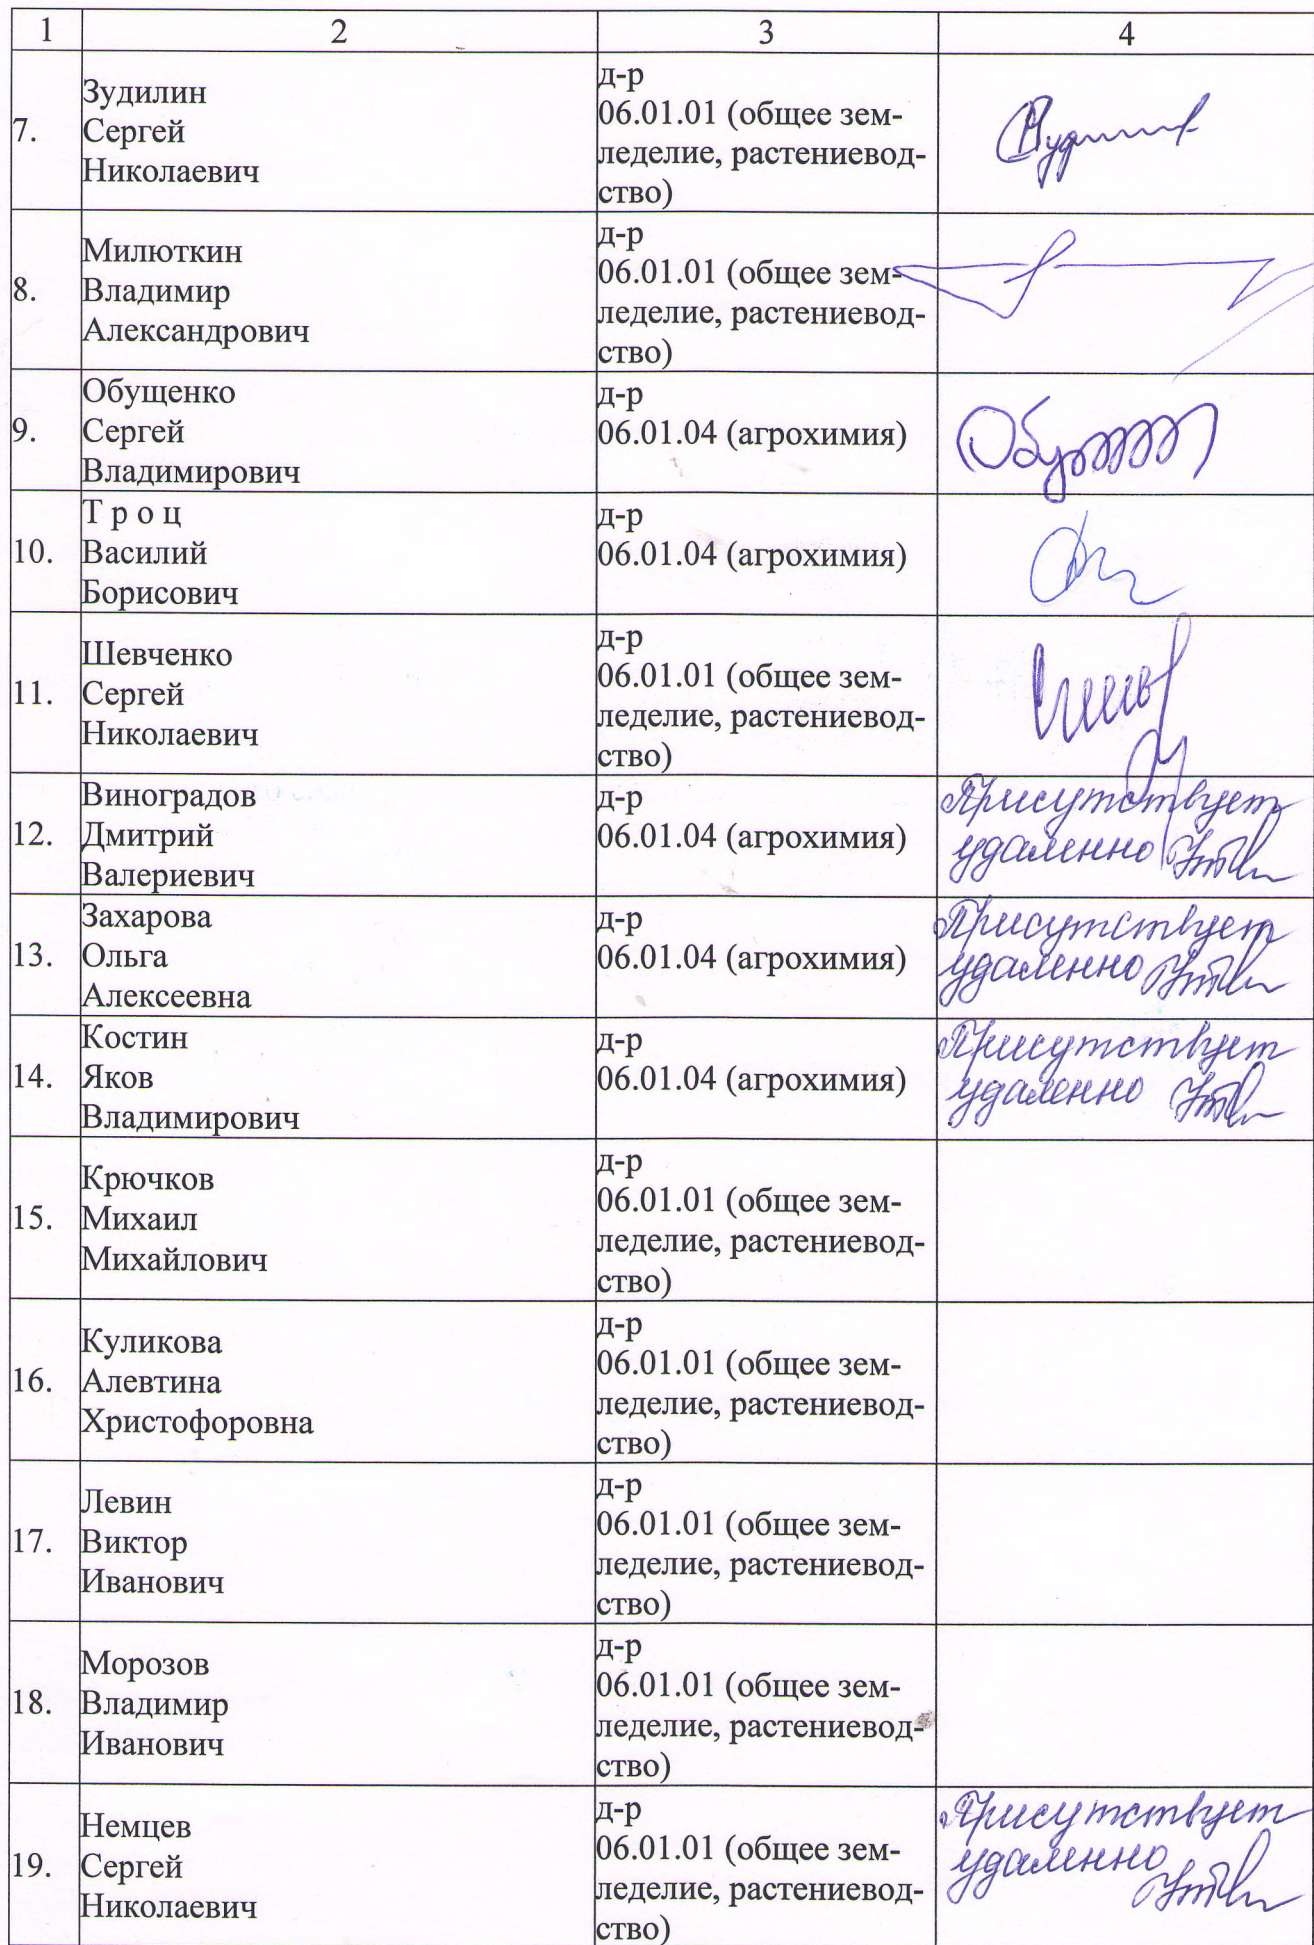 1 2 3 4
7.
Зудилин
Сергей
Николаевич
д-р
06.01.01 (общее зем-
леделие, растениевод-
ство)
8.
Милюткин
Владимир
Александрович
д-р
06.01.01 (общее зем-
леделие, растениевод-
ство)
9.
Обущенко
Сергей
Владимирович
д-р
06.01.04 (агрохимия)
10.
Т р о ц
Василий
Борисович
д-р
06.01.04 (агрохимия)
11.
Шевченко
Сергей
Николаевич
д-р
06.01.01 (общее зем-
леделие, растениевод-
ство)
12.
Виноградов
Дмитрий
Валериевич
д-р
06.01.04 (агрохимия)
Присутствует
удаленно
13.
Захарова
Ольга
Алексеевна
д-р
06.01.04 (агрохимия)
Присутствует
удаленно
14.
Костин
Яков
Владимирович
д-р
06.01.04 (агрохимия)
Присутствует
удаленно
15.
Крючков
Михаил
Михайлович
д-р
06.01.01 (общее зем-
леделие, растениевод-
ство)
16.
Куликова
Алевтина
Христофоровна
д-р
06.01.01 (общее зем-
леделие, растениевод-
ство)
17.
Левин
Виктор
Иванович
д-р
06.01.01 (общее зем-
леделие, растениевод-
ство)
18.
Морозов
Владимир
Иванович
д-р
06.01.01 (общее зем-
леделие, растениевод-
ство)
19.
Немцев
Сергей
Николаевич
д-р
06.01.01 (общее зем-
леделие, растениевод-
ство)
Присутствует
удаленно